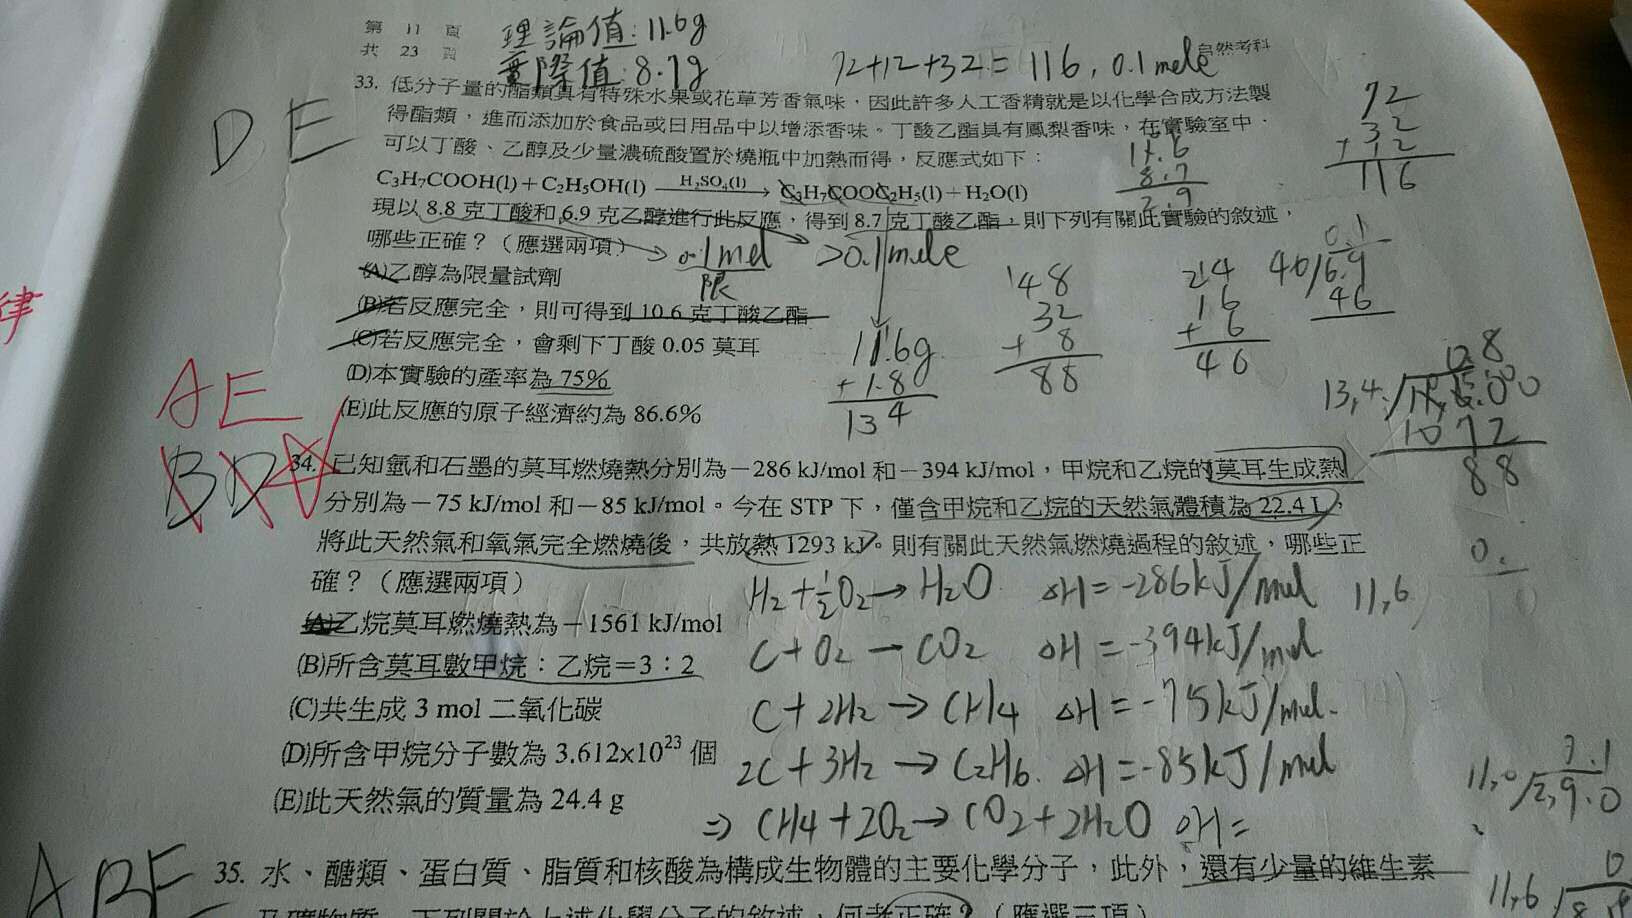 第 11 頁
共 23 頁
理論值:11.6g
實際值:8.7g
72+12+32=116, 0.1mole
自然考科
33. 低分子量的酯類具有特殊水果或花草芳香氣味，因此許多人工香精就是以化學合成方法製
得酯類，進而添加於食品或日用品中以增添香味。丁酸乙酯具有鳳梨香味，在實驗室中，
可以丁酸、乙醇及少量濃硫酸置於燒瓶中加熱而得，反應式如下：
DE
72
32
+12
116
11.6
8.7
2.9
C₃H₇COOH(l)+C₂H₅OH(l) —H₂SO₄(l)→ C₃H₇COOC₂H₅(l)+H₂O(l)
現以 8.8 克丁酸和 6.9 克乙醇進行此反應，得到 8.7 克丁酸乙酯，則下列有關此實驗的敘述，
哪些正確？（應選兩項）
0.1mol
限
>0.1mole
(A)乙醇為限量試劑
(B)若反應完全，則可得到 10.6 克丁酸乙酯
(C)若反應完全，會剩下丁酸 0.05 莫耳
(D)本實驗的產率為 75%
(E)此反應的原子經濟約為 86.6%
11.6g
+1.8
13 4
48
32
+ 8
88
24
16
+ 6
46
0.1
46/6.9
46
13,4
1072
88
律
AE
BD
34. 已知氫和石墨的莫耳燃燒熱分別為－286 kJ/mol 和－394 kJ/mol，甲烷和乙烷的莫耳生成熱
分別為－75 kJ/mol 和－85 kJ/mol。今在 STP 下，僅含甲烷和乙烷的天然氣體積為 22.4 L，
將此天然氣和氧氣完全燃燒後，共放熱 1293 kJ。則有關此天然氣燃燒過程的敘述，哪些正
確？（應選兩項）
(A)乙烷莫耳燃燒熱為－1561 kJ/mol
(B)所含莫耳數甲烷：乙烷＝3：2
(C)共生成 3 mol 二氧化碳
(D)所含甲烷分子數為 3.612x10²³ 個
(E)此天然氣的質量為 24.4 g
H₂+½O₂→H₂O ΔH=-286kJ/mol
11,6
0.
C+O₂→CO₂ ΔH=-394kJ/mol
C+2H₂→CH4 ΔH=-75kJ/mol.
2C+3H₂→C₂H6. ΔH=-85kJ/mol
⇒ CH4+2O₂→CO₂+2H₂O ΔH=
ABE
35. 水、醣類、蛋白質、脂質和核酸為構成生物體的主要化學分子，此外，還有少量的維生素
及礦物質。下列關於上述化學分子的敘述，何者正確？（應選三項）